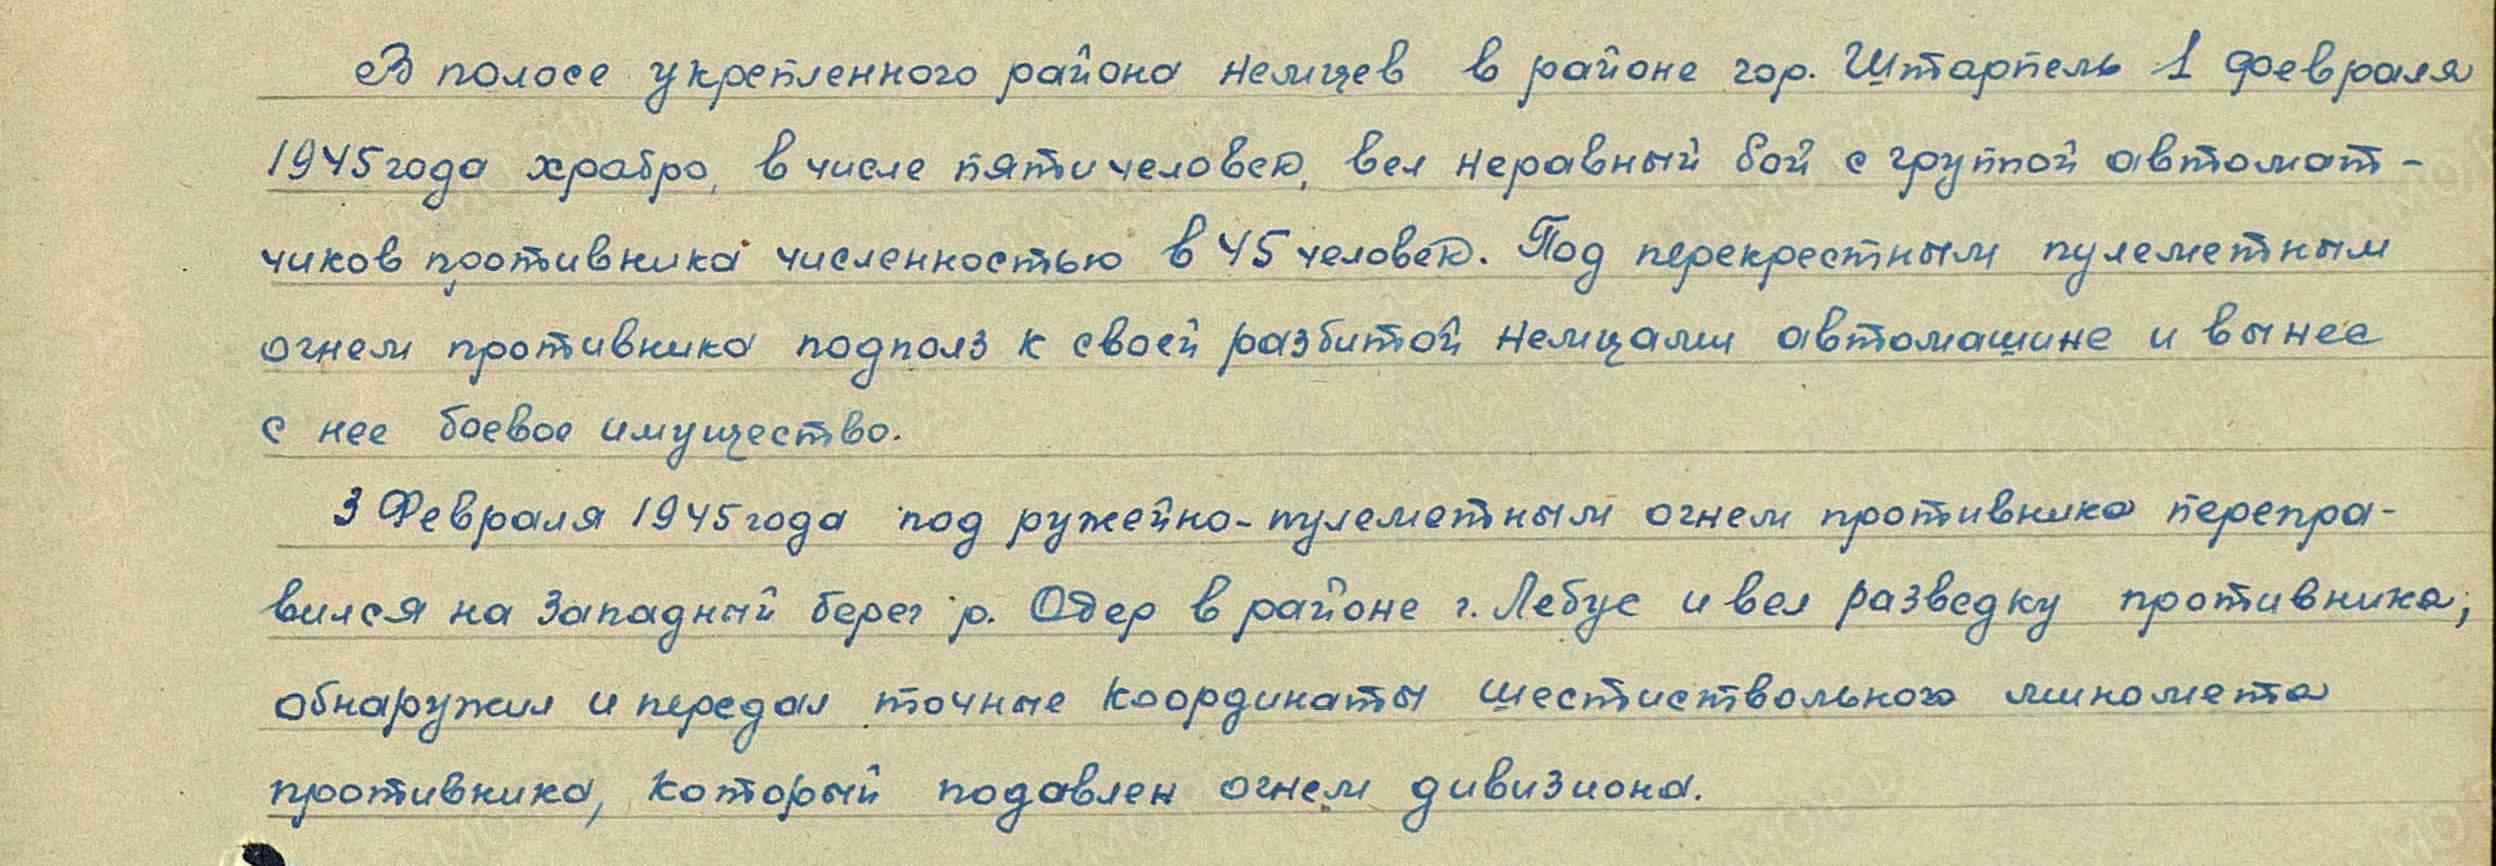 В полосе укрепленного района немцев в районе гор. Штарпель 1 февраля
1945 года храбро, в числе пяти человек, вел неравный бой с группой автомат-
чиков противника численностью в 45 человек. Под перекрестным пулеметным
огнем противника подполз к своей разбитой немцами автомашине и вынес
с нее боевое имущество.
3 Февраля 1945 года под ружейно-пулеметным огнем противника перепра-
вился на Западный берег р. Одер в районе г. Лебус и вел разведку противника,
обнаружил и передал точные координаты шестиствольного миномета
противника, который подавлен огнем дивизиона.